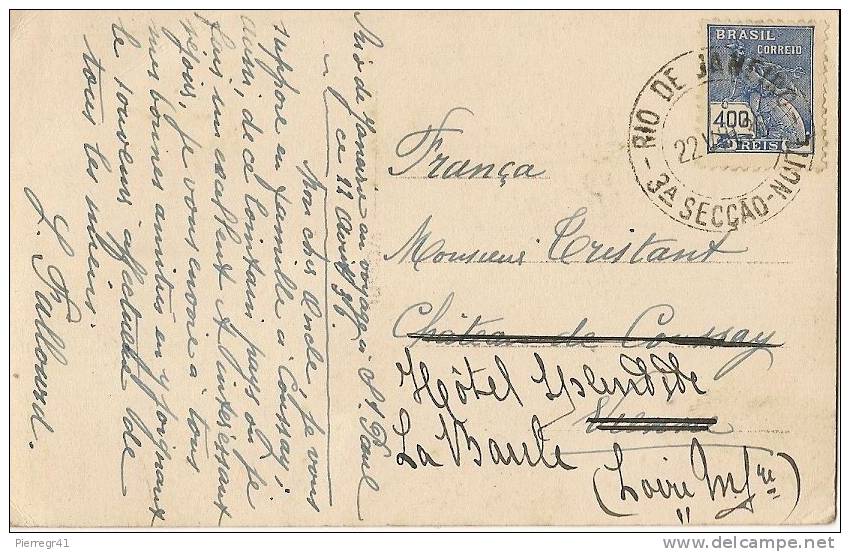 Rio de Janeiro en voyage à St Paul
ce 22 Août 36.
Mon cher Oncle, je vous
suppose en famille à Coussay;
aussi, de ce lointain pays où je
fais un excellent & intéressant
séjour, je vous envoie à tous
mes bonnes amitiés en y joignant
le souvenir affectueux de
tous les miens.
L. Fallourd.
BRASIL
CORREIO
400
REIS
RIO DE JANEIRO
22
3A SECÇÃO-NOITE
França
Monsieur Tristant
Château de Coussay
Hôtel Splendide
Vienne
La Baule
(Loire Infre)
Pierregr41
www.delcampe.net